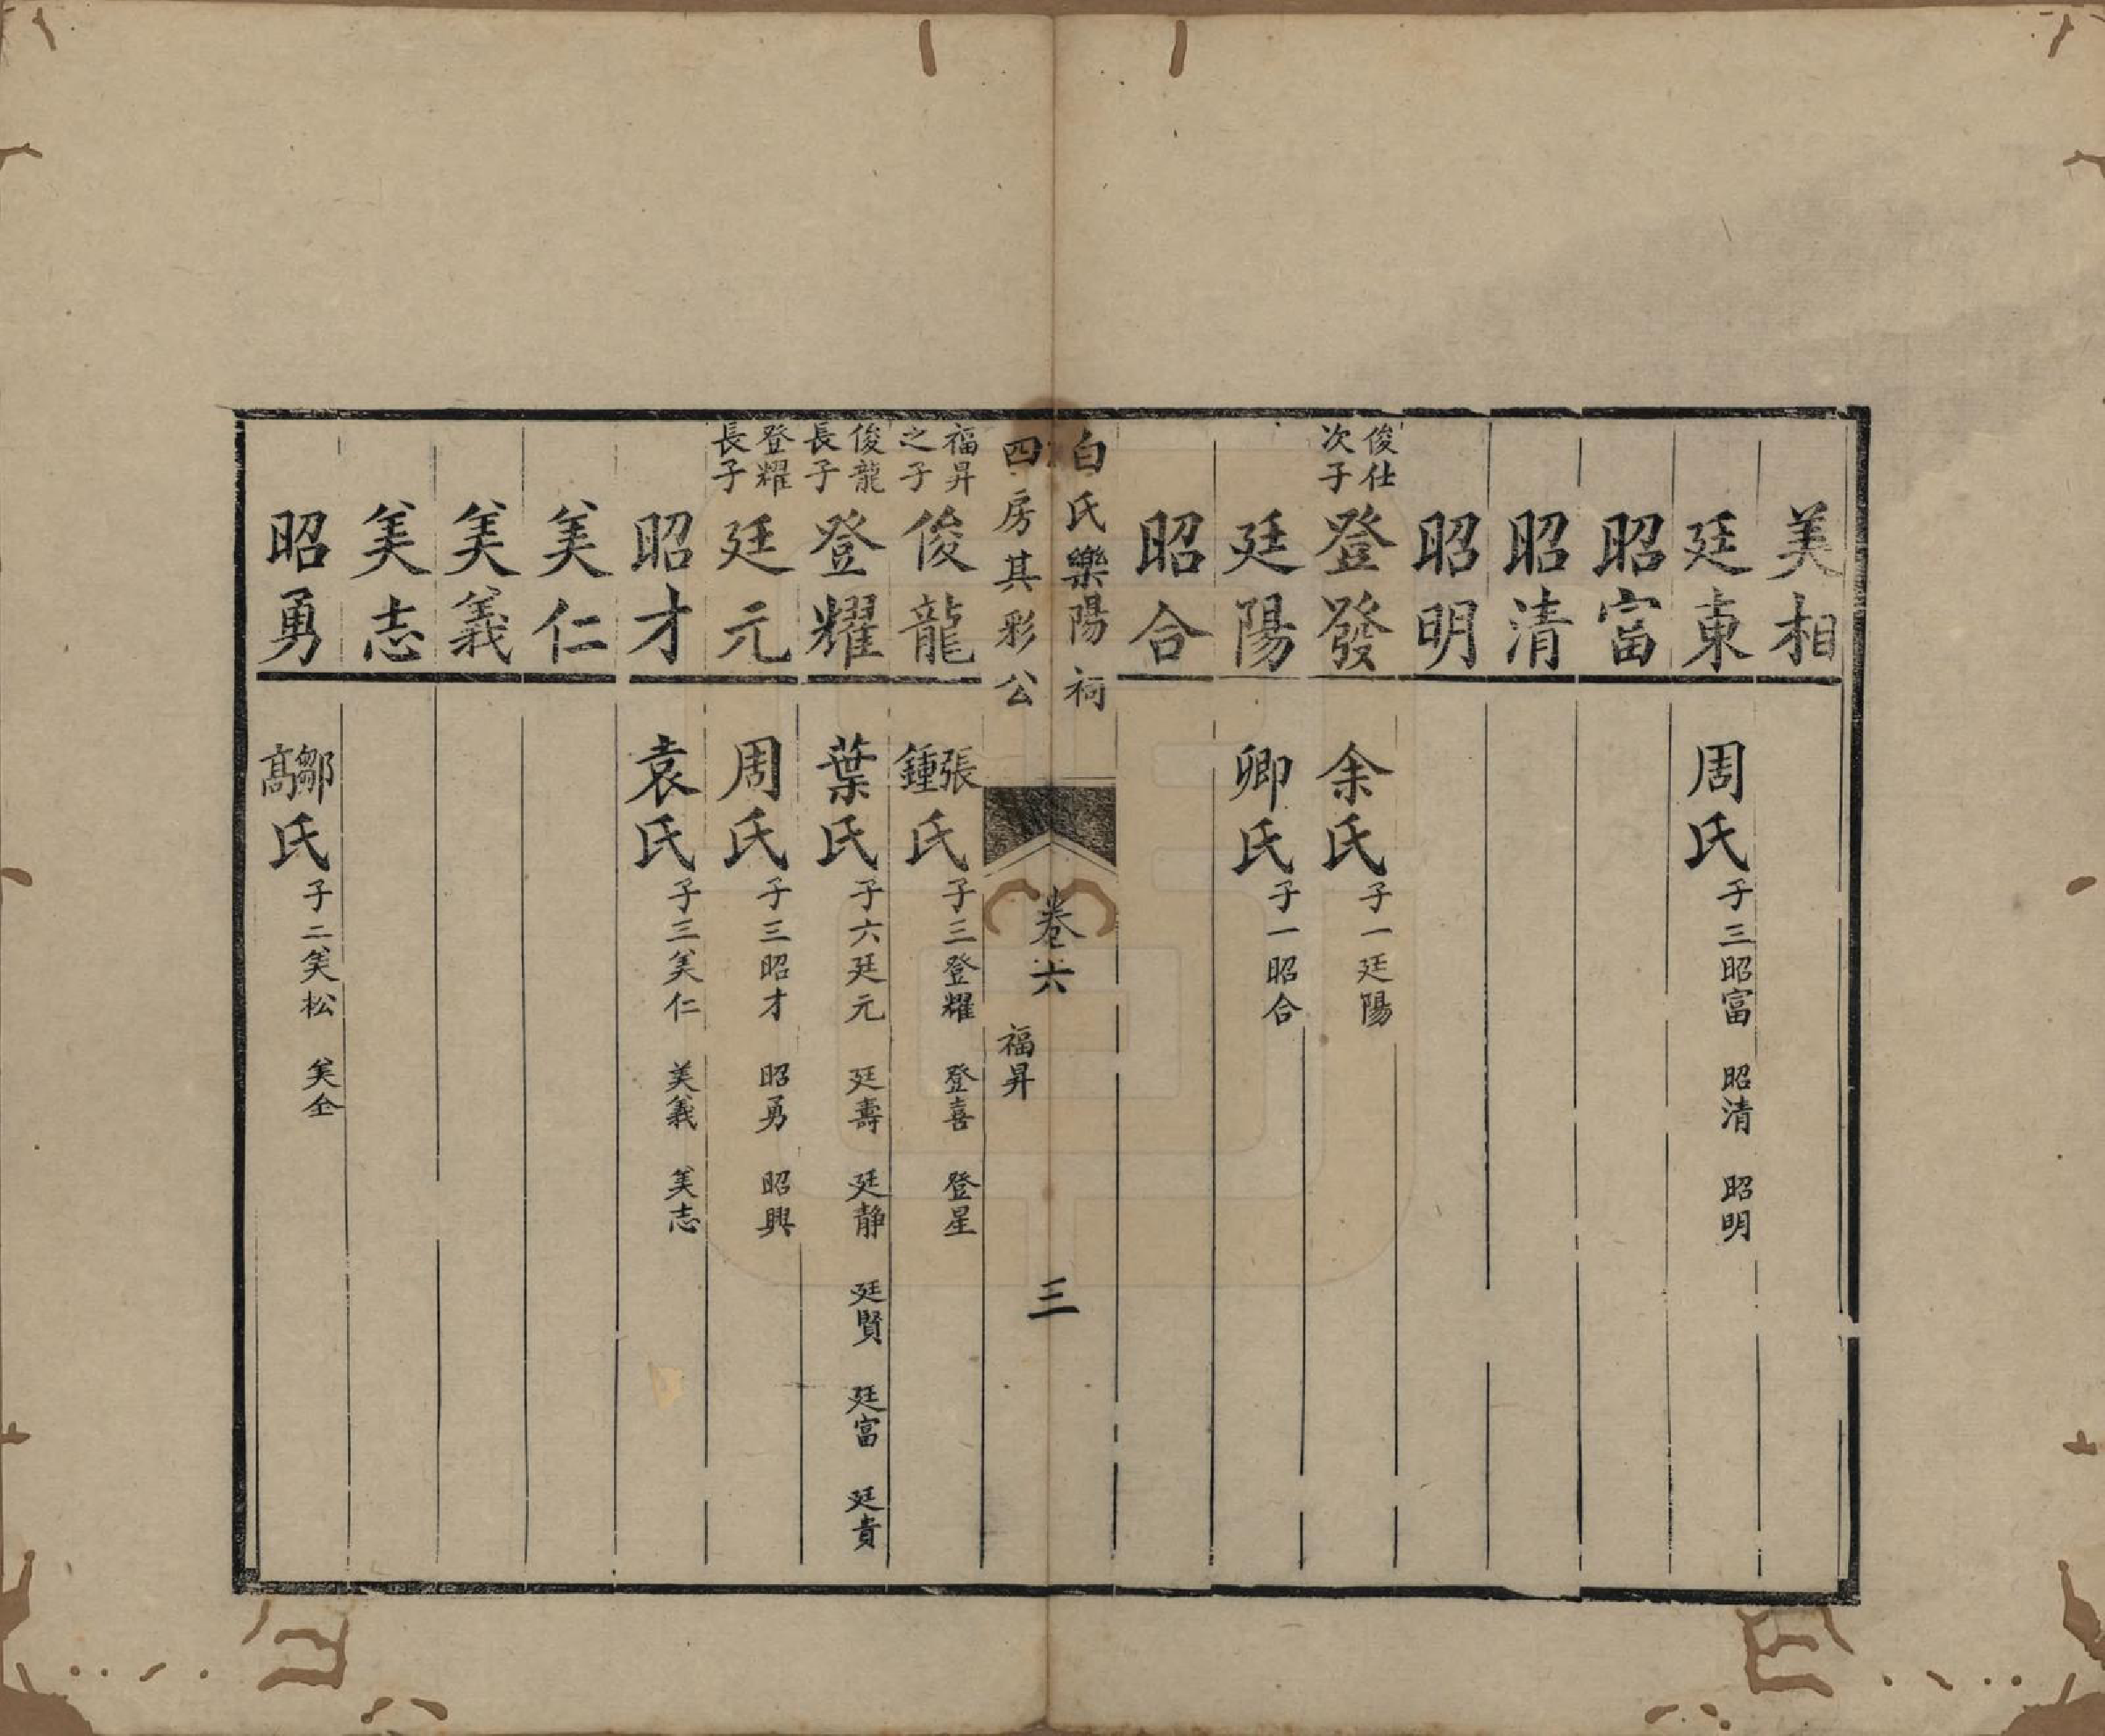 美相
廷東　周氏　子三昭富　昭清　昭明
昭富
昭清
昭明
俊仕次子　登發　余氏　子一廷陽
廷陽　卿氏　子一昭合
昭合
白氏樂陽祠
四房其彩公
卷六
福昇
三
福昇之子　俊龍　張鍾氏　子三登耀　登喜　登星
俊龍長子　登耀　葉氏　子六廷元　廷壽　廷静　廷賢　廷富　廷貴
登耀長子　廷元　周氏　子三昭才　昭勇　昭興
昭才　袁氏　子三美仁　美義　美志
美仁
美義
美志
昭勇　鄒髙氏　子二美松　美全